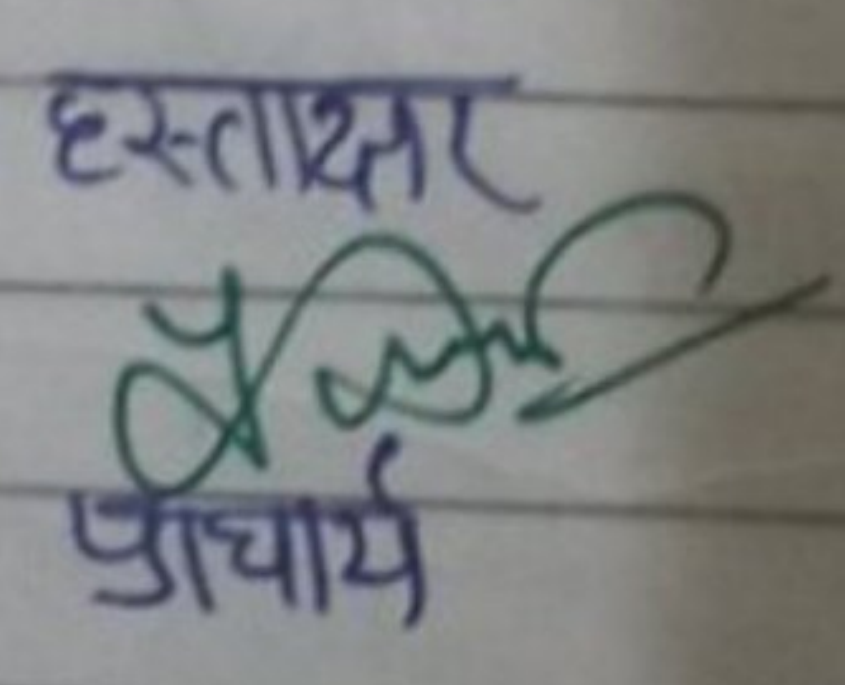 हस्ताक्षर
प्राचार्य